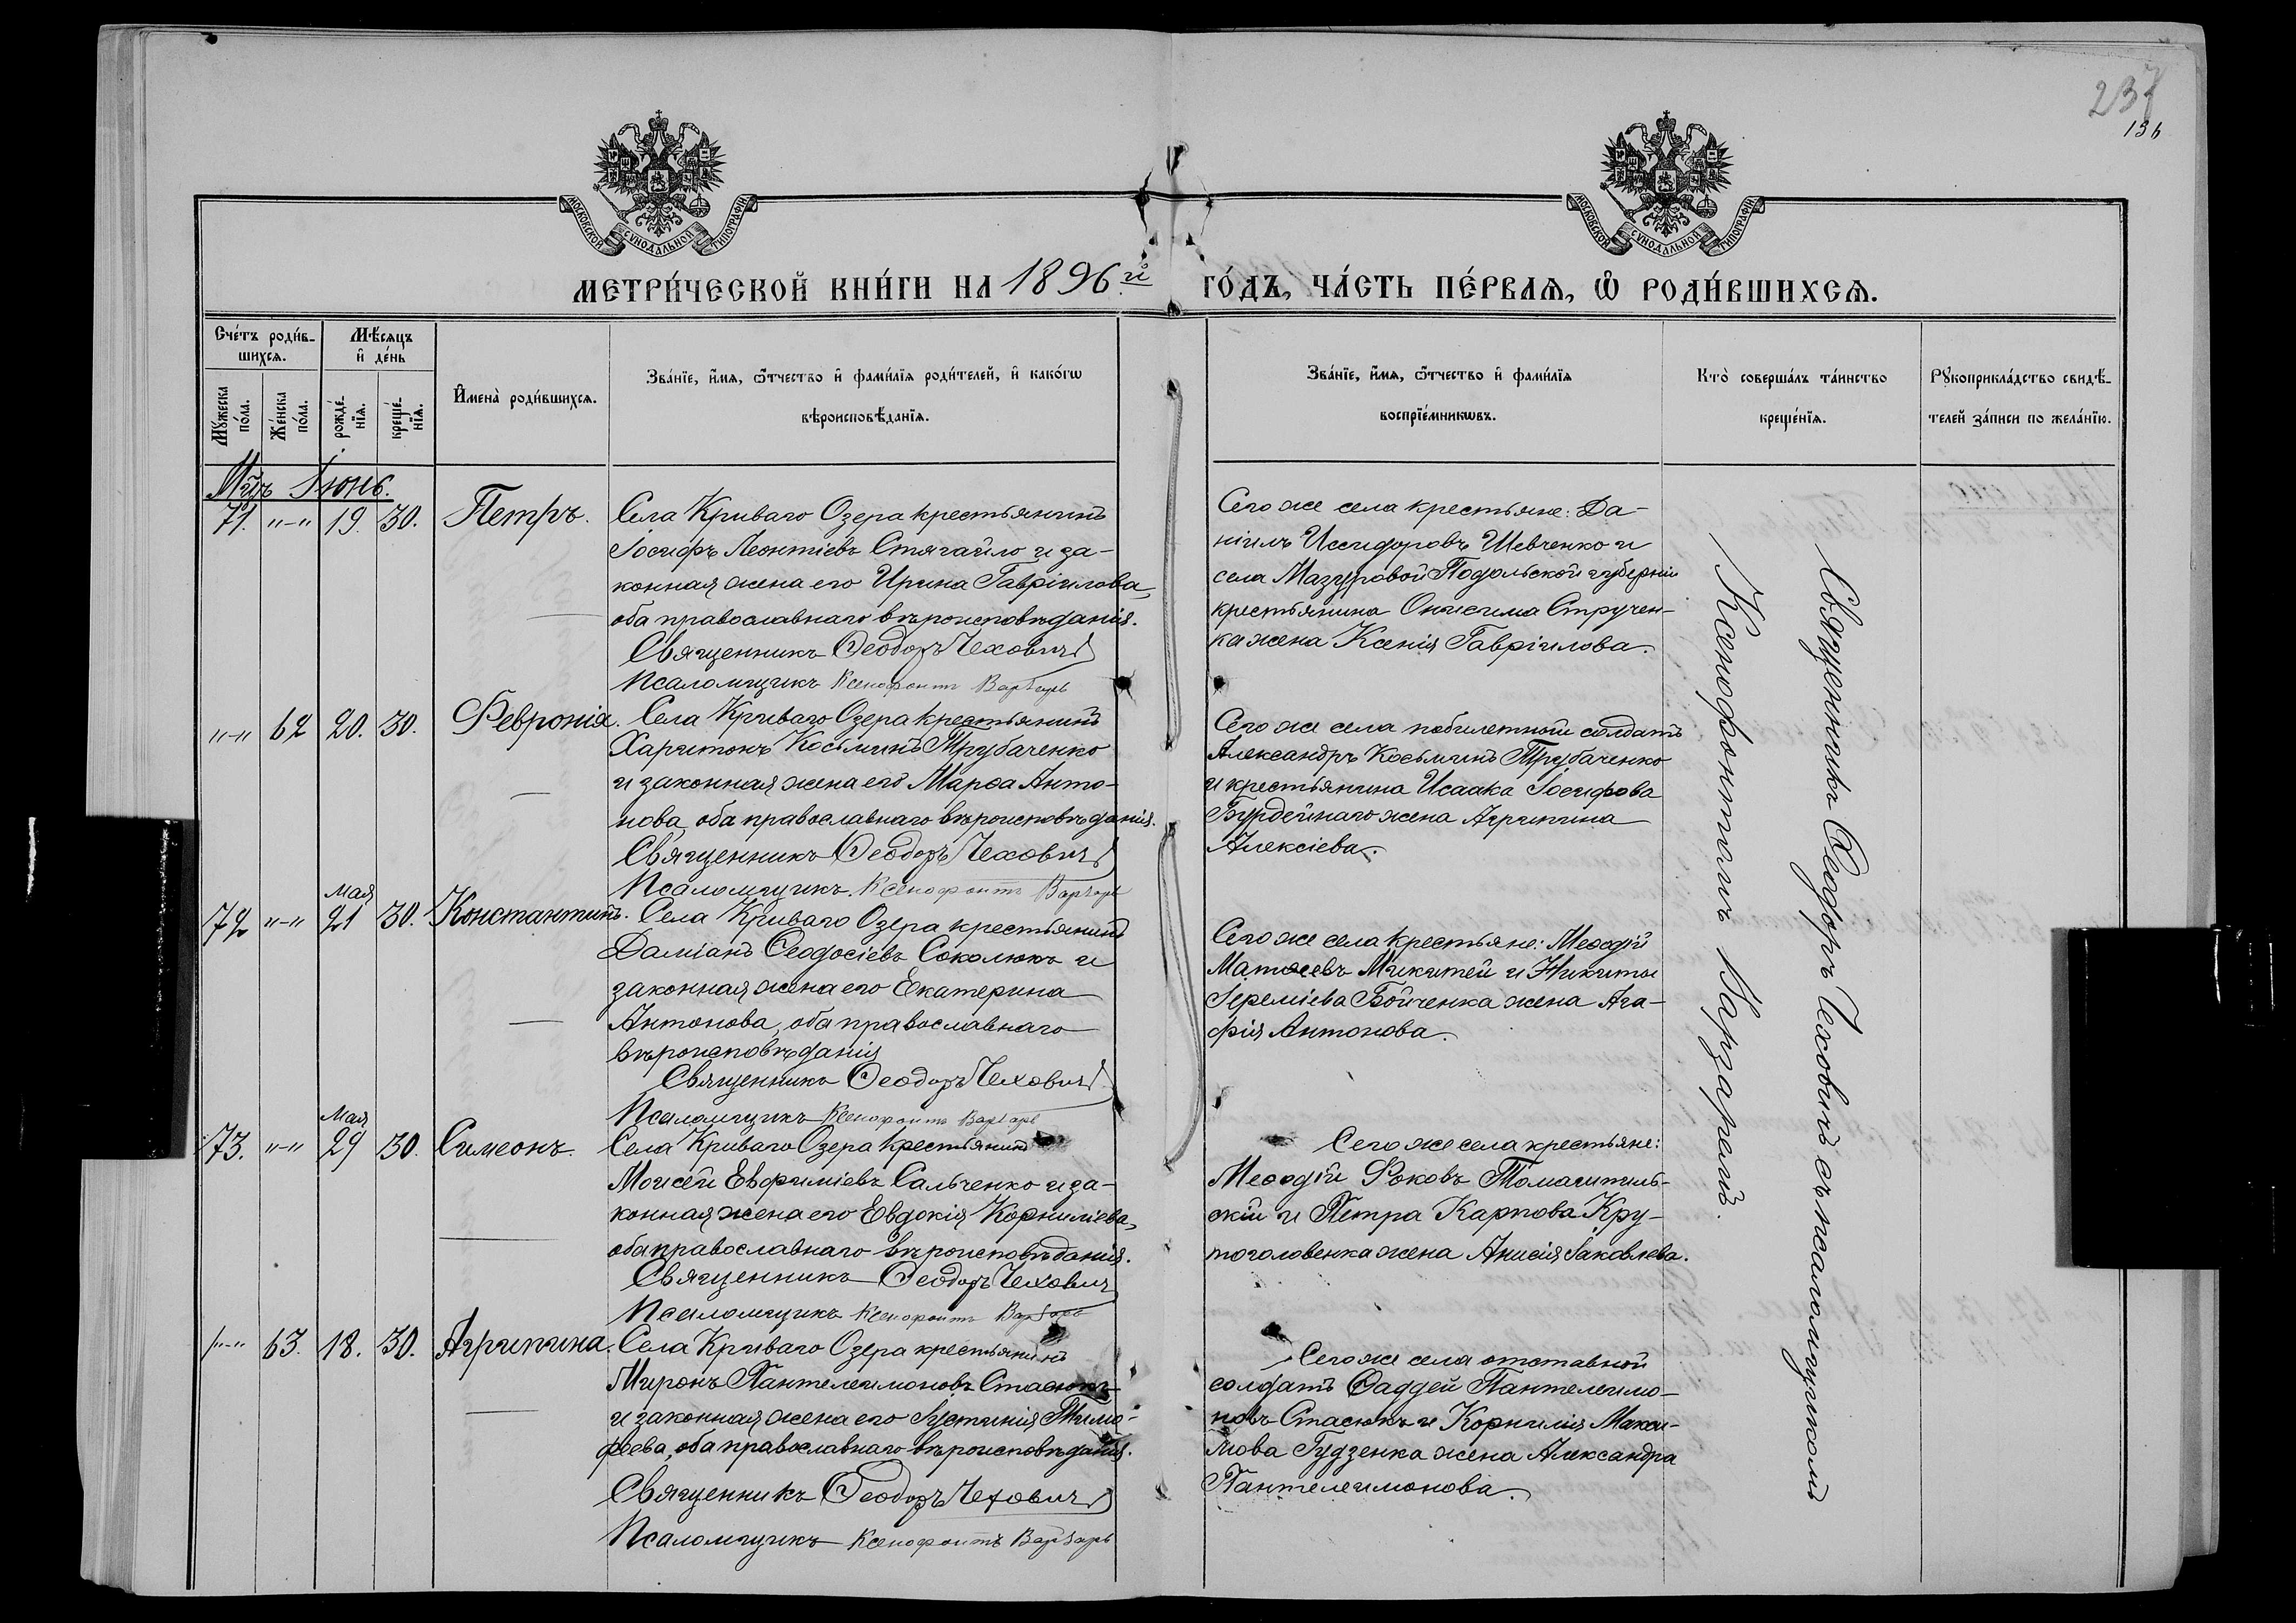 237
136
МОСКОВСКОЙ СѴНОДАЛЬНОЙ ТИПОГРАФІИ
МОСКОВСКОЙ СѴНОДАЛЬНОЙ ТИПОГРАФІИ
МЕТРИ́ЧЕСКОЙ КНИ́ГИ НА 1896.й ГО́ДЪ, ЧА́СТЬ ПЕ́РВАѦ, Ѽ РОДИ́ВШИХСѦ.
Сче́тъ роди́в-
шихсѧ.
Мꙋ́жеска
по́ла.
Же́нска
по́ла.
Мѣ́сѧцъ
и҆ де́нь
рожде́-
нїѧ.
креще́-
нїѧ.
И҆мена̀ роди́вшихсѧ.
Зва́нїе, и҆́мѧ, ѻ҆́тчество и҆ фами́лїѧ роди́телей, и҆ како́гѡ
вѣроисповѣ́данїѧ.
Зва́нїе, и҆́мѧ, ѻ҆́тчество и҆ фами́лїѧ
воспрїе́мникѡвъ.
Кто̀ соверша́лъ та́инство
креще́нїѧ.
Рꙋкоприкла́дство свидѣ́-
телей за́писи по жела́нїю.
Мцъ Іюнь.
71. "-" 19. 30. Петръ.
Села Криваго Озера крестьянинъ
Іосифъ Леонтіевъ Стягайло и за-
конная жена его Ирина Гавріилова,
оба православнаго вѣроисповѣданія.
Священникъ Ѳеодоръ Чеховичъ
Псаломщикъ Ксенофонтъ Варзарь
Сего же села крестьяне: Да-
ніилъ Иссидоровъ Шевченко и
села Мазуровой Подольской губерніи
крестьянина Онисима Стручен-
ка жена Ксенія Гавріилова.
"-" 62 20. 30. Февронія.
Села Криваго Озера крестьянинъ
Харитонъ Косьминъ Трубаченко
и законная жена его Марѳа Анто-
нова, оба православнаго вѣроисповѣданія.
Священникъ Ѳеодоръ Чеховичъ
Псаломщикъ Ксенофонтъ Варзарь
Сего же села побилетный солдатъ
Александръ Косьминъ Трубаченко
и крестьянина Исаака Іосифова
Бурдейнаго жена Агрипина
Алексіева.
72 "-" Мая 21 30. Константинъ.
Села Криваго Озера крестьянинъ
Даміанъ Ѳеодосіевъ Соколюкъ и
законная жена его Екатерина
Антонова, оба православнаго
вѣроисповѣданія
Священникъ Ѳеодоръ Чеховичъ
Псаломщикъ Ксенофонтъ Варзарь
Сего же села крестьяне: Меѳодій
Матѳеевъ Микитей и Никиты
Іереміева Бойченка жена Ага-
фія Антонова.
73. "-" Мая 29 30. Симеонъ.
Села Криваго Озера крестьянинъ
Моисей Евфиміевъ Сальченко и за-
конная жена его Евдокія Корниліева,
оба православнаго вѣроисповѣданія.
Священникъ Ѳеодоръ Чеховичъ
Псаломщикъ Ксенофонтъ Варзарь
Сего же села крестьяне:
Меѳодій Фоковъ Томашпиль-
скій и Петра Карпова Кру-
тоголовенка жена Анисія Іаковлева.
"-" 63. 18. 30. Агрипина.
Села Криваго Озера крестьянинъ
Миронъ Пантелеимоновъ Стасюкъ
и законная жена его Іустинія Тимо-
феева, оба православнаго вѣроисповѣданія.
Священникъ Ѳеодоръ Чеховичъ
Псаломщикъ Ксенофонтъ Варзарь
Сего же села отставной
солдатъ Ѳаддей Пантелеимо-
новъ Стасюкъ и Корнилія Макси-
мова Гудзенка жена Александра
Пантелеимонова.
Священникъ Ѳеодоръ Чеховичъ съ псаломщикомъ
Ксенофонтомъ Варзаремъ.